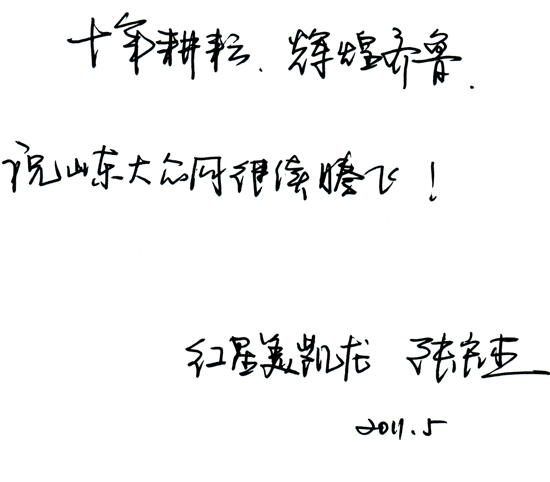 十年耕耘、辉煌齐鲁.
祝山东大众网继续腾飞！
红星美凯龙 张
2011.5